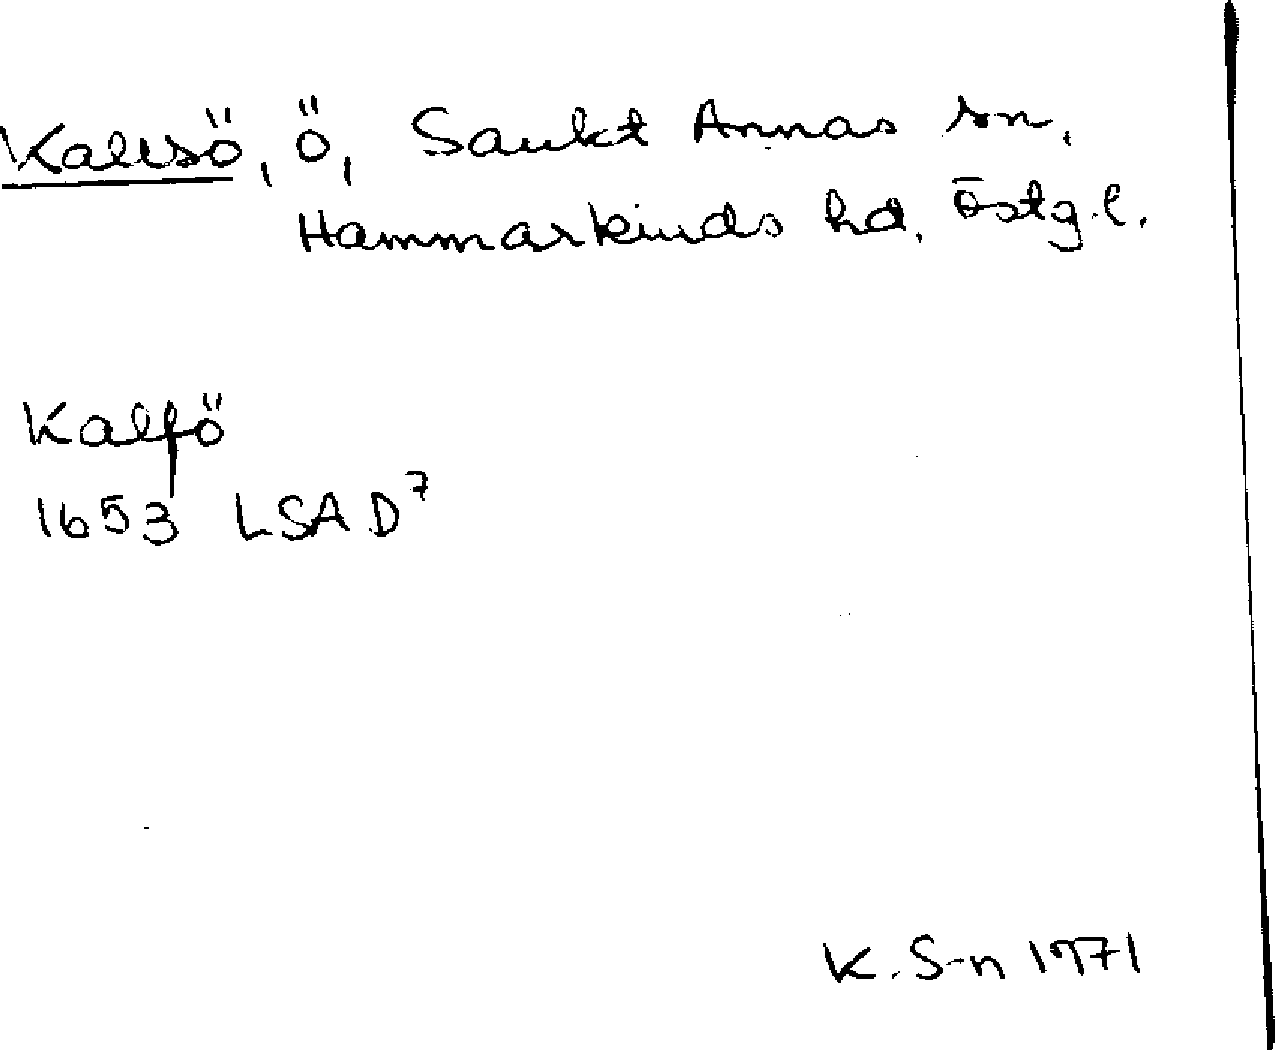 Kallsö, ö, Sankt Annas sn,
Hammarkinds hd, Östg.l.
Kalſö
1653 LSA D⁷
K. S-n 1971